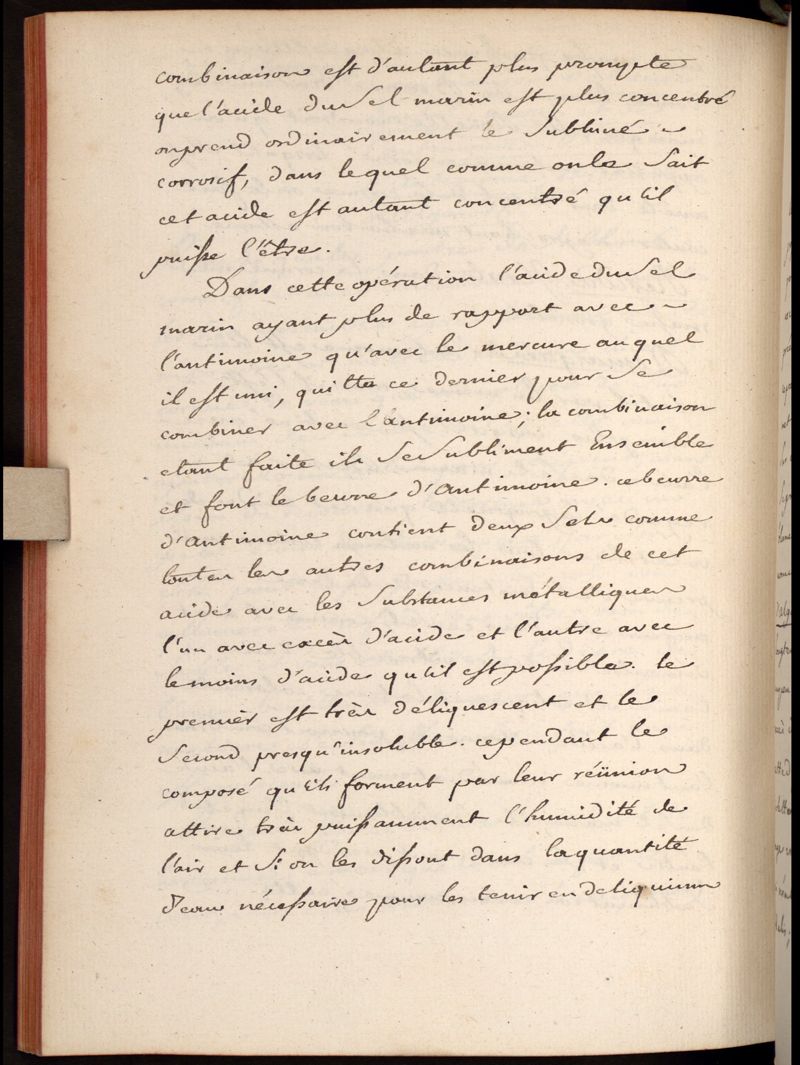 combinaison est d'autant plus prompte
que l'acide du Sel marin est plus concentré
on prend ordinairement le Sublimé
corrosif, dans lequel comme on le Sait
cet acide est autant concentré qu'il
puisse l'être.
Dans cette opération l'acide du Sel
marin ayant plus de rapport avec
l'antimoine qu'avec le mercure auquel
il est uni, quitte ce dernier pour Se
combiner avec L'antimoine; la combinaison
etant faite ils Se Subliment Ensemble
et font le beurre d'antimoine. ce beurre
d'antimoine contient deux Sels comme
toutes les autres combinaisons de cet
acide avec les Substances métalliques
l'un avec excès d'acide et l'autre avec
le moins d'acide qu'il est possible. le
premier est très déliquescent et le
Second presqu'insoluble. cependant le
composé qu'ils forment par leur réünion
attire très puissamment l'humidité de
l'air et Si on les dissout dans la quantité
d'eau nécessaire pour les tenir en deliquium